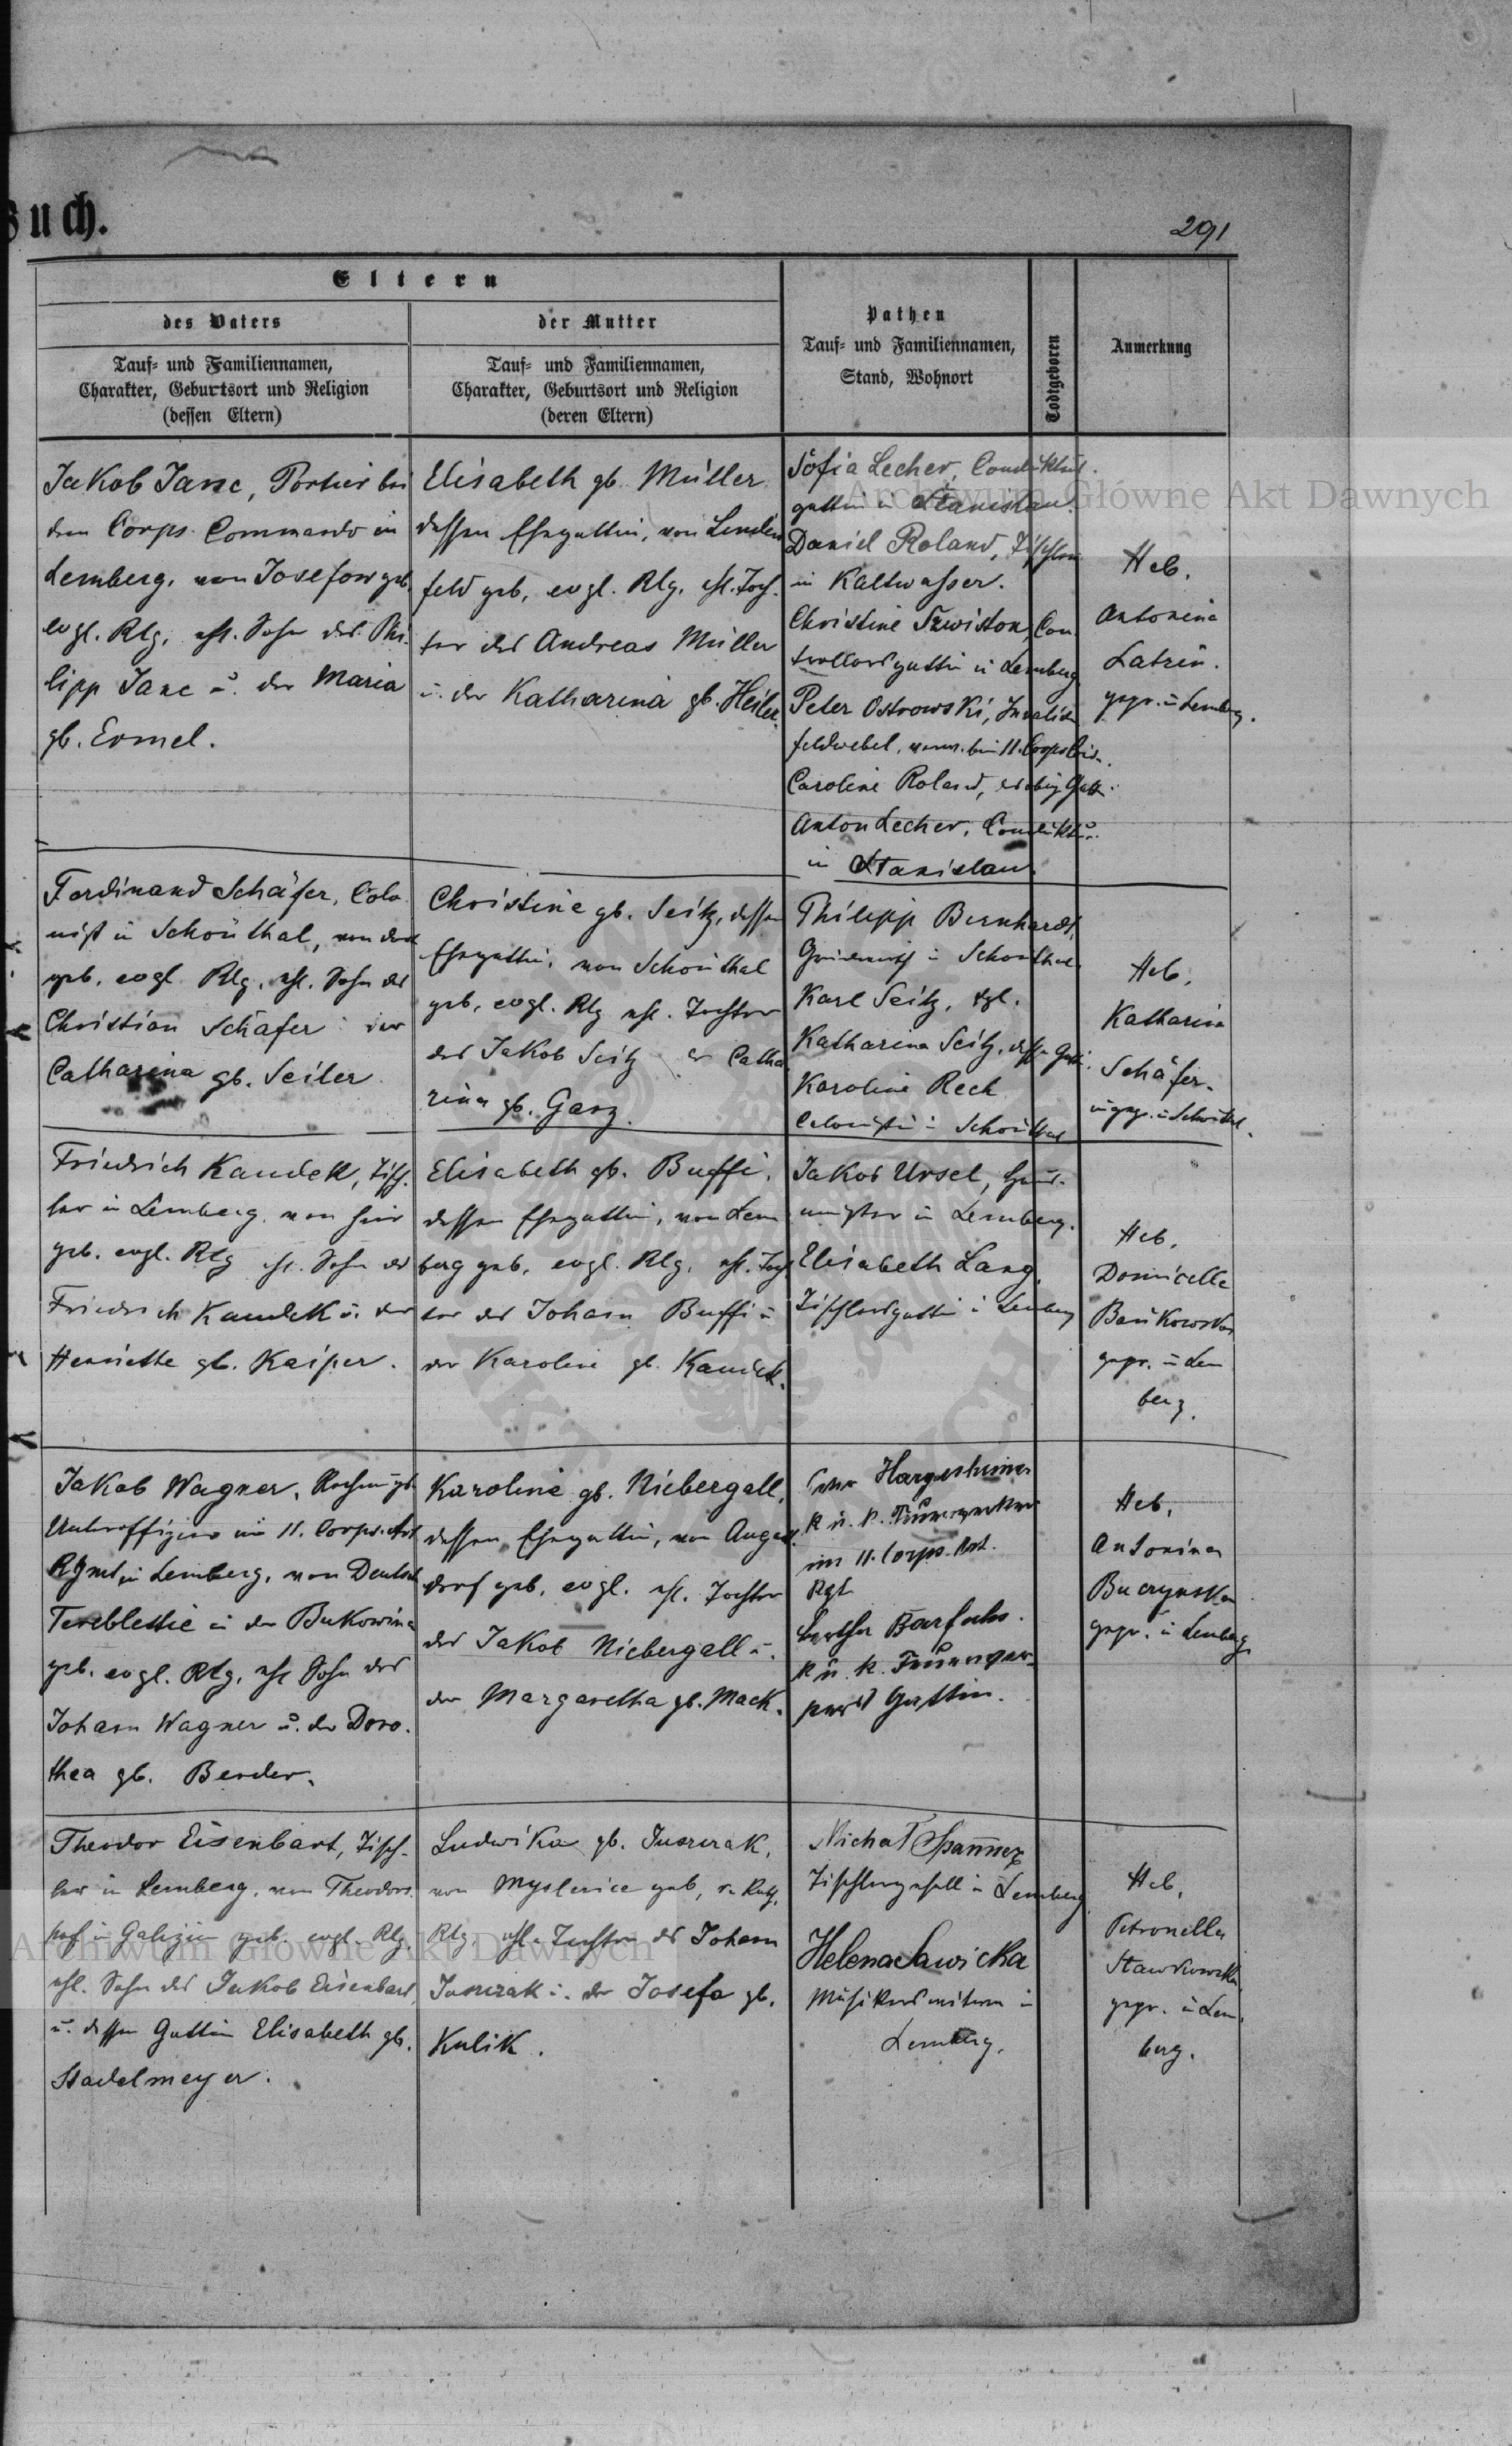 Buch.
291
Eltern
des Vaters
der Mutter
Pathen
Tauf- und Familiennamen,
Stand, Wohnort
Todtgeboren
Anmerkung
Tauf- und Familiennamen,
Charakter, Geburtsort und Religion
(dessen Eltern)
Tauf- und Familiennamen,
Charakter, Geburtsort und Religion
(deren Eltern)
Jakob Janc, Portier bei
dem Corps-Commando in
Lemberg, von Josefow geb.
evgl. Rlg. ehl. Sohn des Phi-
lipp Janc u. der Maria
gb. Ermel.
Elisabeth gb. Müller
dessen Ehegattin, von Linden
feld geb. evgl. Rlg. ehl. Toch-
ter des Andreas Müller
u. der Katharina gb. Heiler.
Sofia Lecher, Conduktus-
gattin in Stanislau.
Daniel Roland, Tischler
in Kaltwasser.
Christine Szwiston, Con-
trollorsgattin in Lemberg
Peter Ostrowski, Invaliden
feldwebel, 11. Corps
Caroline Roland, Gattin
Anton Lecher, Conduktur
in Stanislau
Heb.
Antonina
Latzin.
gepr. in Lemberg.
Ferdinand Schäfer, Colo-
nist in Schönthal, von dort
geb. evgl. Rlg. ehl. Sohn des
Christian Schäfer der
Catharina gb. Seiler
Christine gb. Seitz, dessen
Ehegattin, von Schönthal
geb. evgl. Rlg ehl. Tochter
des Jakob Seitz der Catha-
rina gb. Ganz.
Philipp Bernhardt,
Grundwirth in Schönthal
Karl Seitz, dgl.
Katharina Seitz, dessen Gattin.
Karoline Rech
Colonistin in Schönthal
Heb.
Katharina
Schäfer.
ungepr. in Schönthal.
Friedrich Kaudek, Tisch-
ler in Lemberg, von hier
geb. evgl. Rlg ehl. Sohn des
Friedrich Kaudek u. der
Henriette gb. Kaiper.
Elisabeth gb. Buffi,
dessen Ehegattin, von Lem
berg geb. evgl. Rlg. ehl. Toch
ter des Johann Buffi u
der Karoline gb Kaudek.
Jakob Ursel,
in Lemberg.
Elisabeth Lang,
Tischlersgattin in Lemberg
Heb.
Domicella
Bańkowska
gepr. in Lem
berg.
Jakob Wagner,
Unteroffizier im 11. Corps-Art.
Rgmt in Lemberg, von Deutsch
Tereblestie in der Bukowina
geb. evgl. Rlg. ehl Sohn des
Johann Wagner u. der Doro-
thea gb. Bender.
Karoline gb. Niebergall,
dessen Ehegattin, von August
dorf geb. evgl. ehl. Tochter
des Jakob Niebergall u.
der Margaretha gb. Mack.
Hargesheimer
k u. k. Feuerwerker
im 11. Corps-Art.
Rgt
Bertha Barfuhs
k u. k. Feuerwer-
kers Gattin.
Heb.
Antonina
Buczynska
gepr. in Lemberg.
Theodor Eisenbart, Tisch-
ler in Lemberg, von Theodors
hof in Galizien geb. evgl. Rlg.
ehl. Sohn des Jakob Eisenbart
u. dessen Gattin Elisabeth gb.
Stadelmeyer.
Ludwika gb. Juszczak,
von Myslenice geb, r. kath.
Rlg. ehl. Tochter des Johann
Juszczak u. der Josefa gb.
Kulik.
Michał Spanner
Tischlergesell in Lemberg
Helena Sawicka
Musikers witwe in
Lemberg.
Heb.
Petronella
Stawkowska
gepr. in Lem-
berg.
Archiwum Główne Akt Dawnych
Archiwum Główne Akt Dawnych